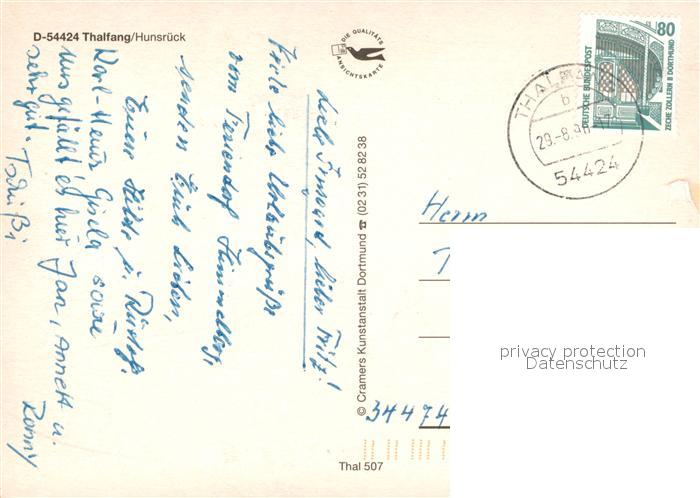 D-54424 Thalfang/Hunsrück
DIE QUALITÄTS
ANSICHTSKARTE
80
DEUTSCHE BUNDESPOST
ZECHE ZOLLERN II DORTMUND
THAL
b
29.-8.
54424
Liebe Irmgard, lieber Fritz!
Viele liebe Urlaubsgrüße
vom Feriendorf Himmelberg,
senden Euch Lieben,
Eure Hilde u. Rudolf.
Karl-Heinz Gisela sowie
uns gefällt es hier Jan, Annett u.
sehr gut. Ronny
© Cramers Kunstanstalt Dortmund ☎ (02 31) 52 82 38
Herrn
34474
Thal 507
privacy protection
Datenschutz